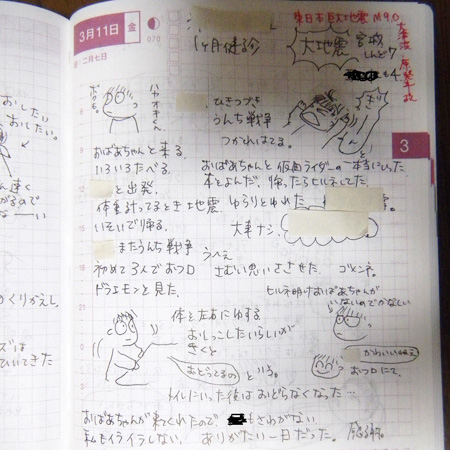 3月11日 金
070
二月七日
1ヶ月健診
東日本巨大地震 M9.0
大津波 原発事故
大地震
宮城
しんど7
も4
ひきつづき
うんち戦争
つかれはてる。
おばあちゃんと来る。
いろいろたべる。
と出発。
おばあちゃんと仮面ライダーの
本とよんだ。帰ったらヒルネしてた。
体重計ってるとき地震 ゆらりとゆれた
いそいで帰る。
大事ナシ。
またうんち戦争
初めて3人でおフロ
さむい思いさせた。ゴメンネ。
ドラえもんと見た。
ヒルネ明けおばあちゃんが
いないのでかなしい
体を左右にゆする。
おしっこしたいらしいが
きくと
おどってるの
という。
かわいいねぇ
おフロにて。
トイレにいった後はおどらなくなった…
おばあちゃんが来てくれたので
もさわがない
私もイライラしない。ありがたい一日だった。感謝。
3
8
9
10
11
12
13
おしたい
おしたい。
速く
がるので
くりかえし。
ズは
ひいてきた